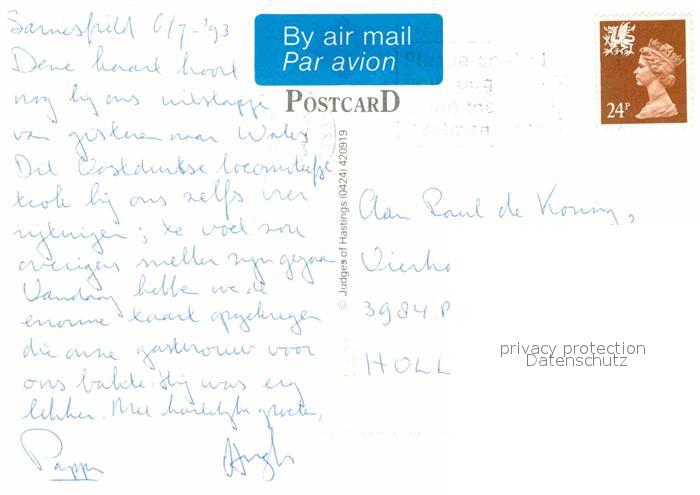 Sarnesfield 6/7-'93
Deze kaart hoort
nog bij ons uitstapje
van gisteren naar Wales
Dit Oostduitse locomotiefje
trok bij ons zelfs vier
rijtuigen; te voet zou
overigens sneller zijn gegaan
Vandaag hebben we de
enorme taart opgekregen
die onze gastvrouw voor
ons bakte. Hij was erg
lekker. Met hartelijke groeten,
Pappa
By air mail
Par avion
POSTCARD
© Judges of Hastings (0424) 420919
24P
Aan Paul de Koning,
3984 P
HOLL
privacy protection
Datenschutz